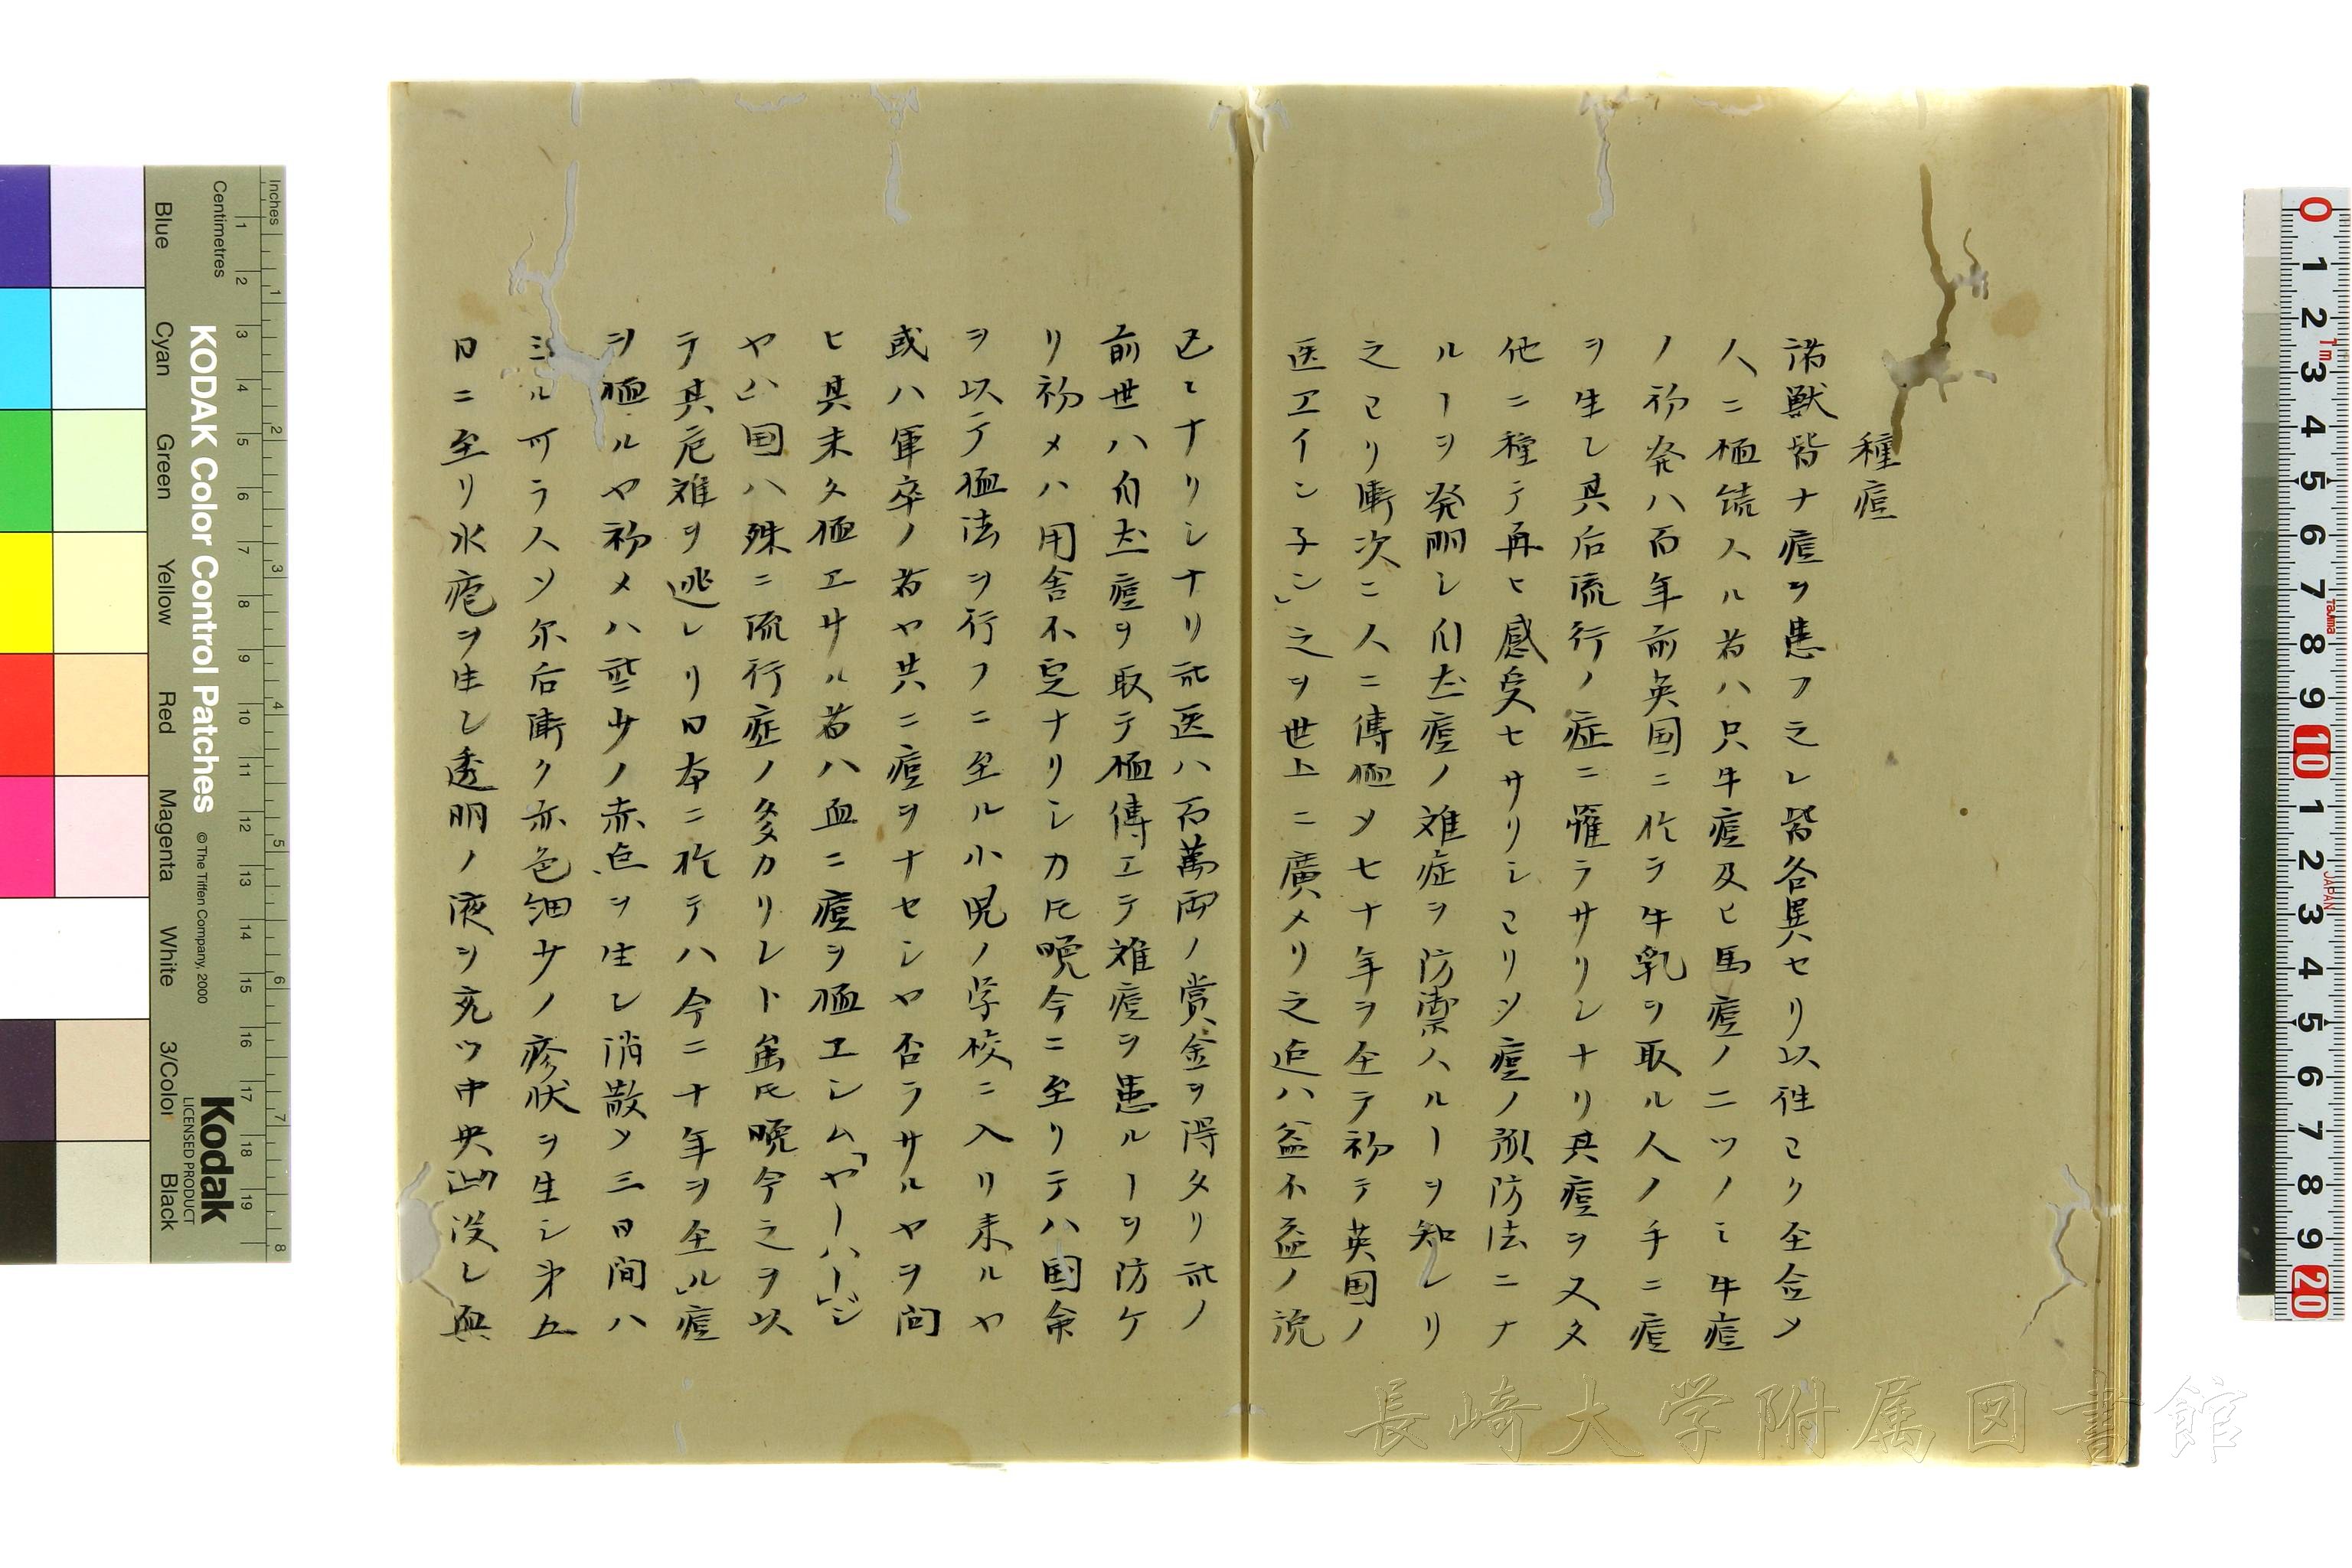 種痘
諸獣皆ナ痘ヲ患フ之レ皆各異セリ以往ヿク全合メ
人ニ種痘スル者ハ只牛痘及ヒ馬痘ノ二ツノミ牛痘
ノ初発ハ百年前英国ニ於ラ牛乳ヲ取ル人ノ手ニ痘
ヲ生シ其后流行ノ症ニ罹ラサリシナリ其痘ヲ又タ
他ニ種テ再ヒ感受セサリシヿリ〆痘ノ預防法ニナ
ルーヲ発明シ自然痘ノ難症ヲ防禦スルーヲ知レリ
之ヿリ漸次ニ人ニ傳種メ七十年ヲ全テ初テ英国ノ
医エインチン」之ヲ世上ニ廣メリ之迄ハ益不益ノ説
已ヒナリシナリ此医ハ百萬両ノ賞金ヲ得タリ此ノ
前世ハ自然痘ヲ取テ種傳エテ難痘ヲ患ルーヲ防ケ
リ初メハ用舎不定ナリシカ𪜈晩今ニ至リテハ国命
ヲ以テ種法ヲ行フニ至ル小児ノ学校ニ入リ来ルヤ
或ハ軍卒ノ者ヤ共ニ痘ヲナセシヤ否ラサルヤヲ問
ヒ其未タ種エサル者ハ血ニ痘ヲ種エシム「ヤーハー」ジ
ヤハ国ハ殊ニ流行症ノ多カリレト雖𪜈晩今之ヲ以
テ其危難ヲ逃レリ日本ニ於テハ今ニ十年ヲ全ル」痘
ヲ種ルヤ初メハ些少ノ赤色ヲ生レ消散メ三日間ハ
ミル可ラス〆尓后漸ク赤色細少ノ疹状ヲ生シ第五
日ニ至リ水疱ヲ生シ透明ノ液ヲ充ツ中央凹没シ真
KODAK Color Control Patches
© The Tiffen Company, 2000
Kodak
LICENSED PRODUCT
Inches 1 2 3 4 5 6 7 8
Centimetres 1 2 3 4 5 6 7 8 9 10 11 12 13 14 15 16 17 18 19
Blue Cyan Green Yellow Red Magenta White 3/Color Black
0 1 2 3 4 5 6 7 8 9 10 1 2 3 4 5 6 7 8 9 20
1m TAJIMA JAPAN
長崎大学附属図書館